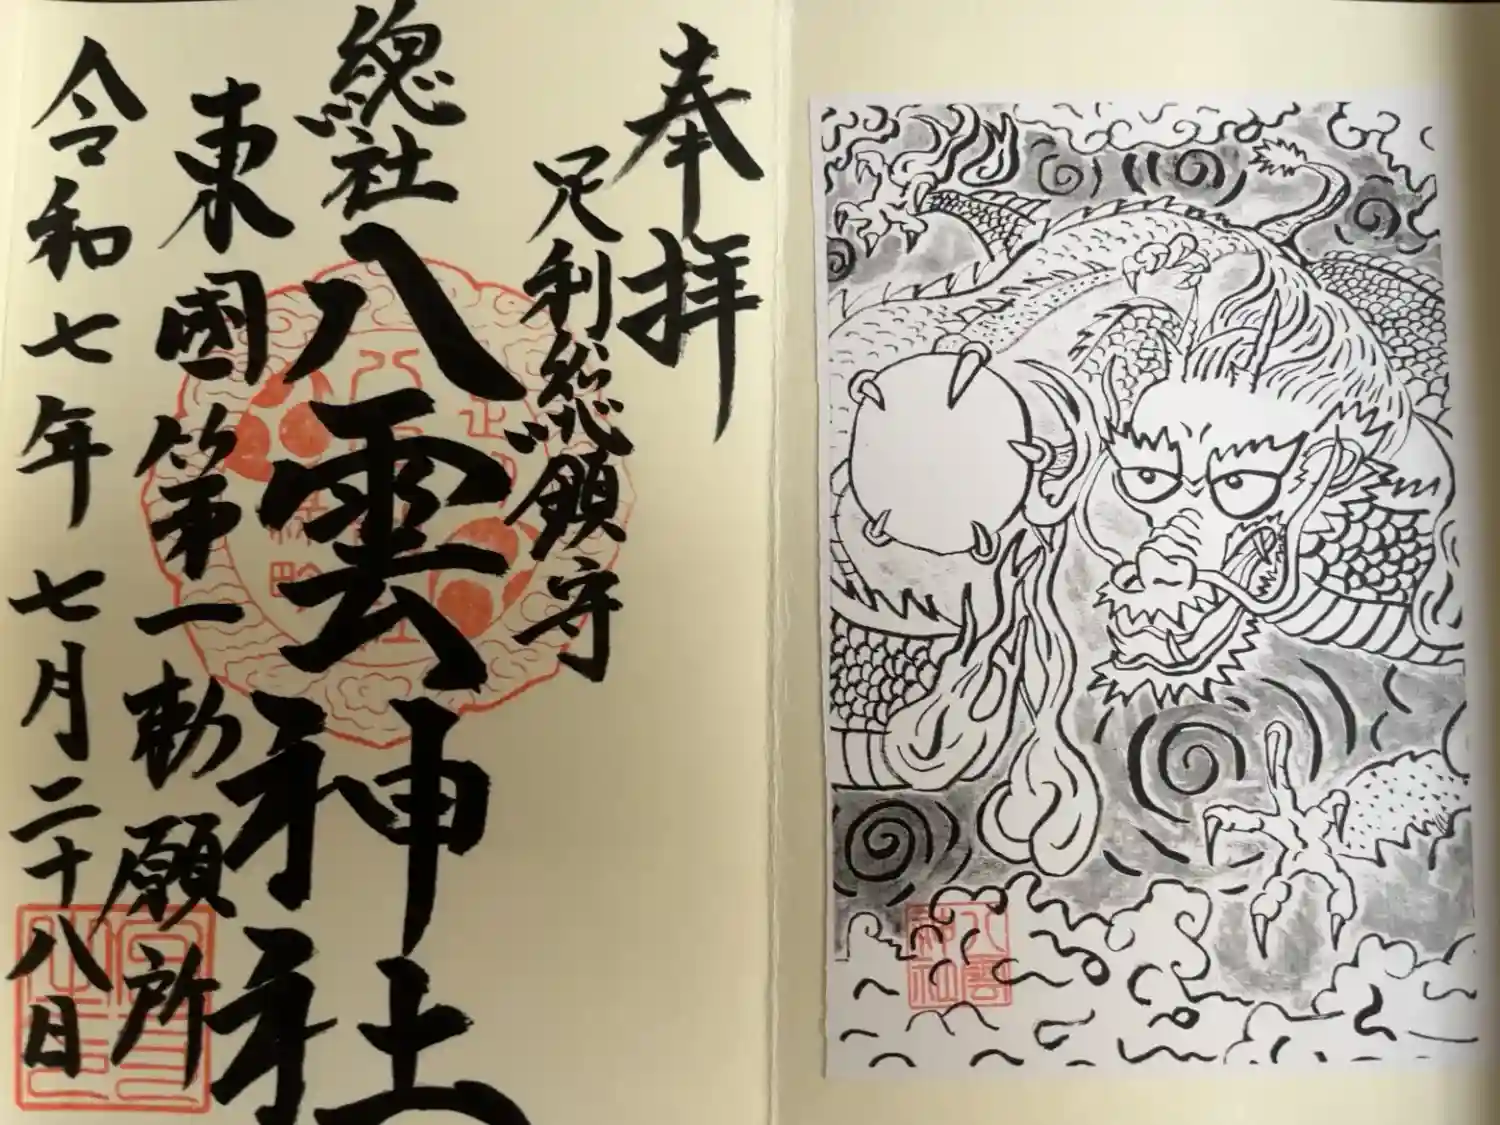 奉拝
足利総鎮守
總社
八雲神社
東國第一勅願所
令和七年七月二十八日
八雲神社